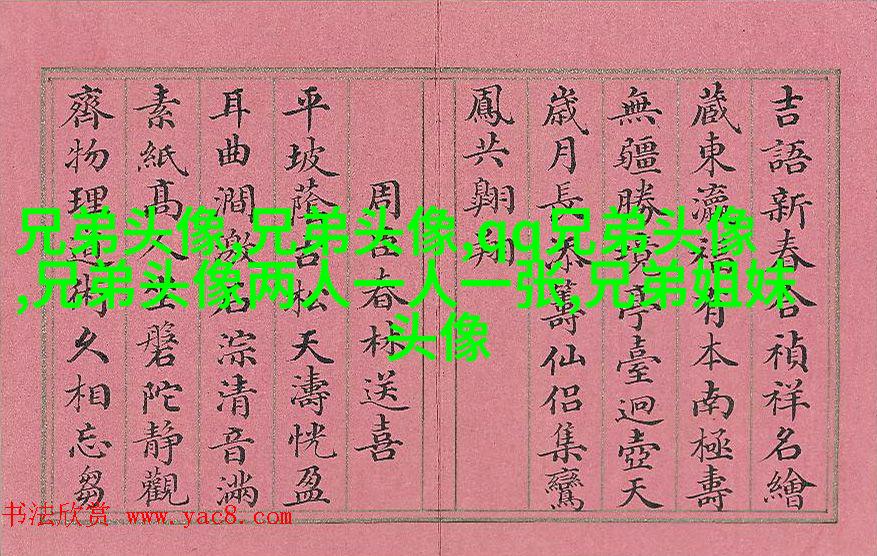 吉語新春合禎祥名繪
蔵東瀛福有本南極壽
無疆勝境亭臺迴壺天
歲月長添籌仙侶集鸞
鳳共翱翔
周臣春林送喜
平坡蔭古松天濤恍盈
耳曲澗激石淙清音滿
素紙高人坐磐陀靜觀
齊物理術久相忘芻
兄弟头像,兄弟头像,qq兄弟头像
,兄弟头像两人一人一张,兄弟姐妹
头像
书法欣赏 www.yac8.com